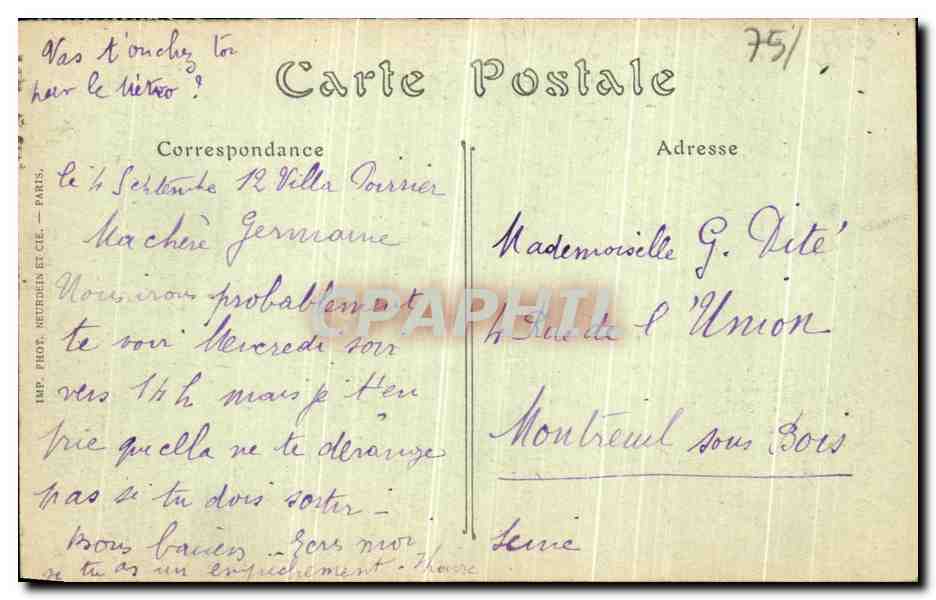 Vas t'ouchez toi
par le métro ?
75/
Carte Postale
Correspondance
Adresse
IMP. PHOT. NEURDEIN ET CIE. — PARIS.
le 4 Septembre 12 Villa Poirrier
Ma chère Germaine
Nous irons probablement
te voir Mercredi soir
vers 14 h mais je t'en
prie que cella ne te dérange
pas si tu dois sortir -
Bons baisers .. Ecris moi
si tu as un empêchement -
Mademoiselle G. Dité
4 Rue de l'Union
Montreuil sous Bois
Seine
CPAPHIL